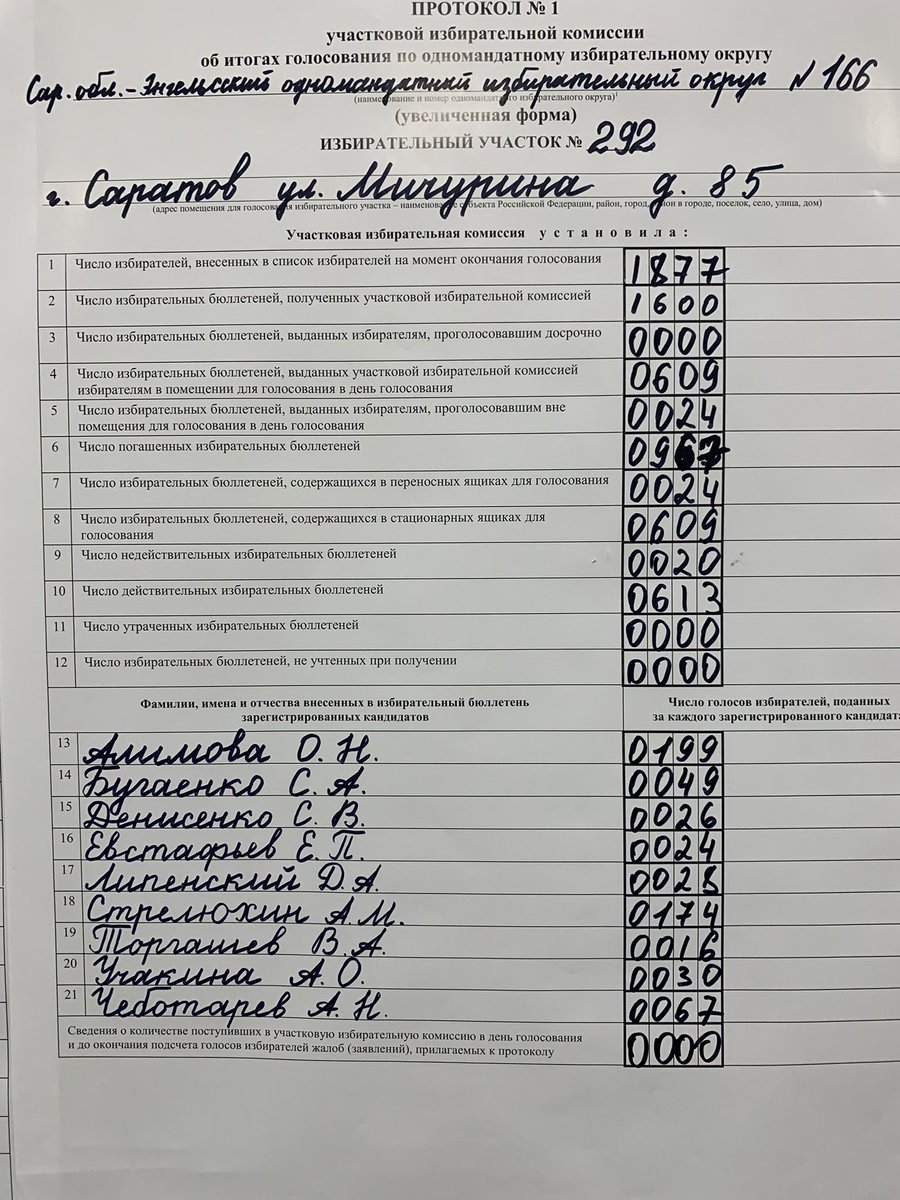 ПРОТОКОЛ № 1
участковой избирательной комиссии
об итогах голосования по одномандатному избирательному округу
Сар. обл. - Энгельсский одномандатный избирательный округ N 166
(наименование и номер одномандатного избирательного округа)1
(увеличенная форма)
ИЗБИРАТЕЛЬНЫЙ УЧАСТОК № 292
г. Саратов ул. Мичурина д. 85
(адрес помещения для голосования избирательного участка – наименование субъекта Российской Федерации, район, город, район в городе, поселок, село, улица, дом)
Участковая избирательная комиссия установила:
1 Число избирателей, внесенных в список избирателей на момент окончания голосования 1877
2 Число избирательных бюллетеней, полученных участковой избирательной комиссией 1600
3 Число избирательных бюллетеней, выданных избирателям, проголосовавшим досрочно 0000
4 Число избирательных бюллетеней, выданных участковой избирательной комиссией
избирателям в помещении для голосования в день голосования 0609
5 Число избирательных бюллетеней, выданных избирателям, проголосовавшим вне
помещения для голосования в день голосования 0024
6 Число погашенных избирательных бюллетеней 0967
7 Число избирательных бюллетеней, содержащихся в переносных ящиках для голосования 0024
8 Число избирательных бюллетеней, содержащихся в стационарных ящиках для
голосования 0609
9 Число недействительных избирательных бюллетеней 0020
10 Число действительных избирательных бюллетеней 0613
11 Число утраченных избирательных бюллетеней 0000
12 Число избирательных бюллетеней, не учтенных при получении 0000
Фамилии, имена и отчества внесенных в избирательный бюллетень
зарегистрированных кандидатов
Число голосов избирателей, поданных
за каждого зарегистрированного кандидат
13 Алимова О. Н. 0199
14 Бугаенко С. А. 0049
15 Денисенко С. В. 0026
16 Евстафьев Е. П. 0024
17 Липенский Д. А. 0028
18 Стрелюхин А. М. 0174
19 Торгашев В. А. 0016
20 Учакина А. О. 0030
21 Чеботарев А. Н. 0067
Сведения о количестве поступивших в участковую избирательную комиссию в день голосования
и до окончания подсчета голосов избирателей жалоб (заявлений), прилагаемых к протоколу 0000